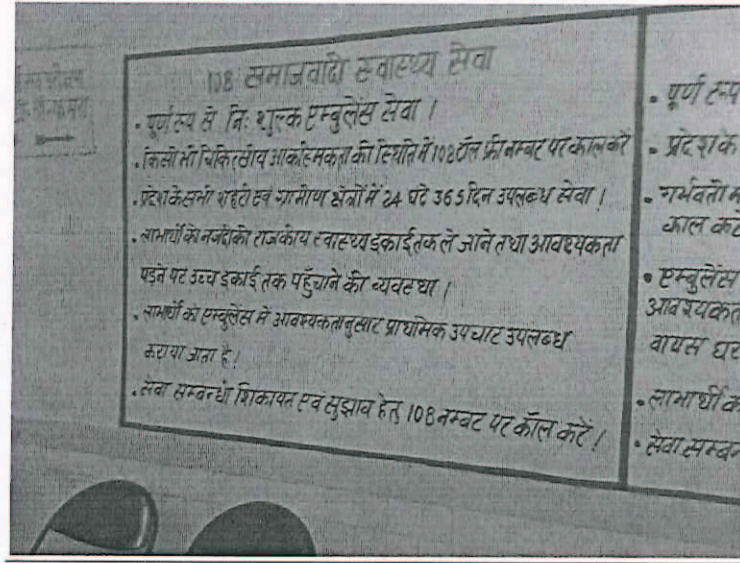 108 समाजवादी स्वास्थ्य सेवा
• पूर्ण रूप से निः शुल्क एम्बुलेंस सेवा ।
• किसी भी चिकित्सीय आकस्मिकता की स्थिति में 108 टॉल फ्री नम्बर पर काल करें
• प्रदेश के सभी शहरी एवं ग्रामीण क्षेत्रों में 24 घंटे 365 दिन उपलब्ध सेवा ।
• लाभार्थी को नजदीकी राजकीय स्वास्थ्य इकाई तक ले जाने तथा आवश्यकता
पड़ने पर उच्च इकाई तक पहुँचाने की व्यवस्था ।
• लाभार्थी को एम्बुलेंस में आवश्यकतानुसार प्राथमिक उपचार उपलब्ध
कराया जाता है ।
• सेवा सम्बन्धी शिकायत एवं सुझाव हेतु 108 नम्बर पर कॉल करें ।
• पूर्ण रूप
• प्रदेश के
• गर्भवती
काल करें
• एम्बुलेंस
आवश्यकत
वापस घर
• लाभार्थी क
• सेवा सम्बन